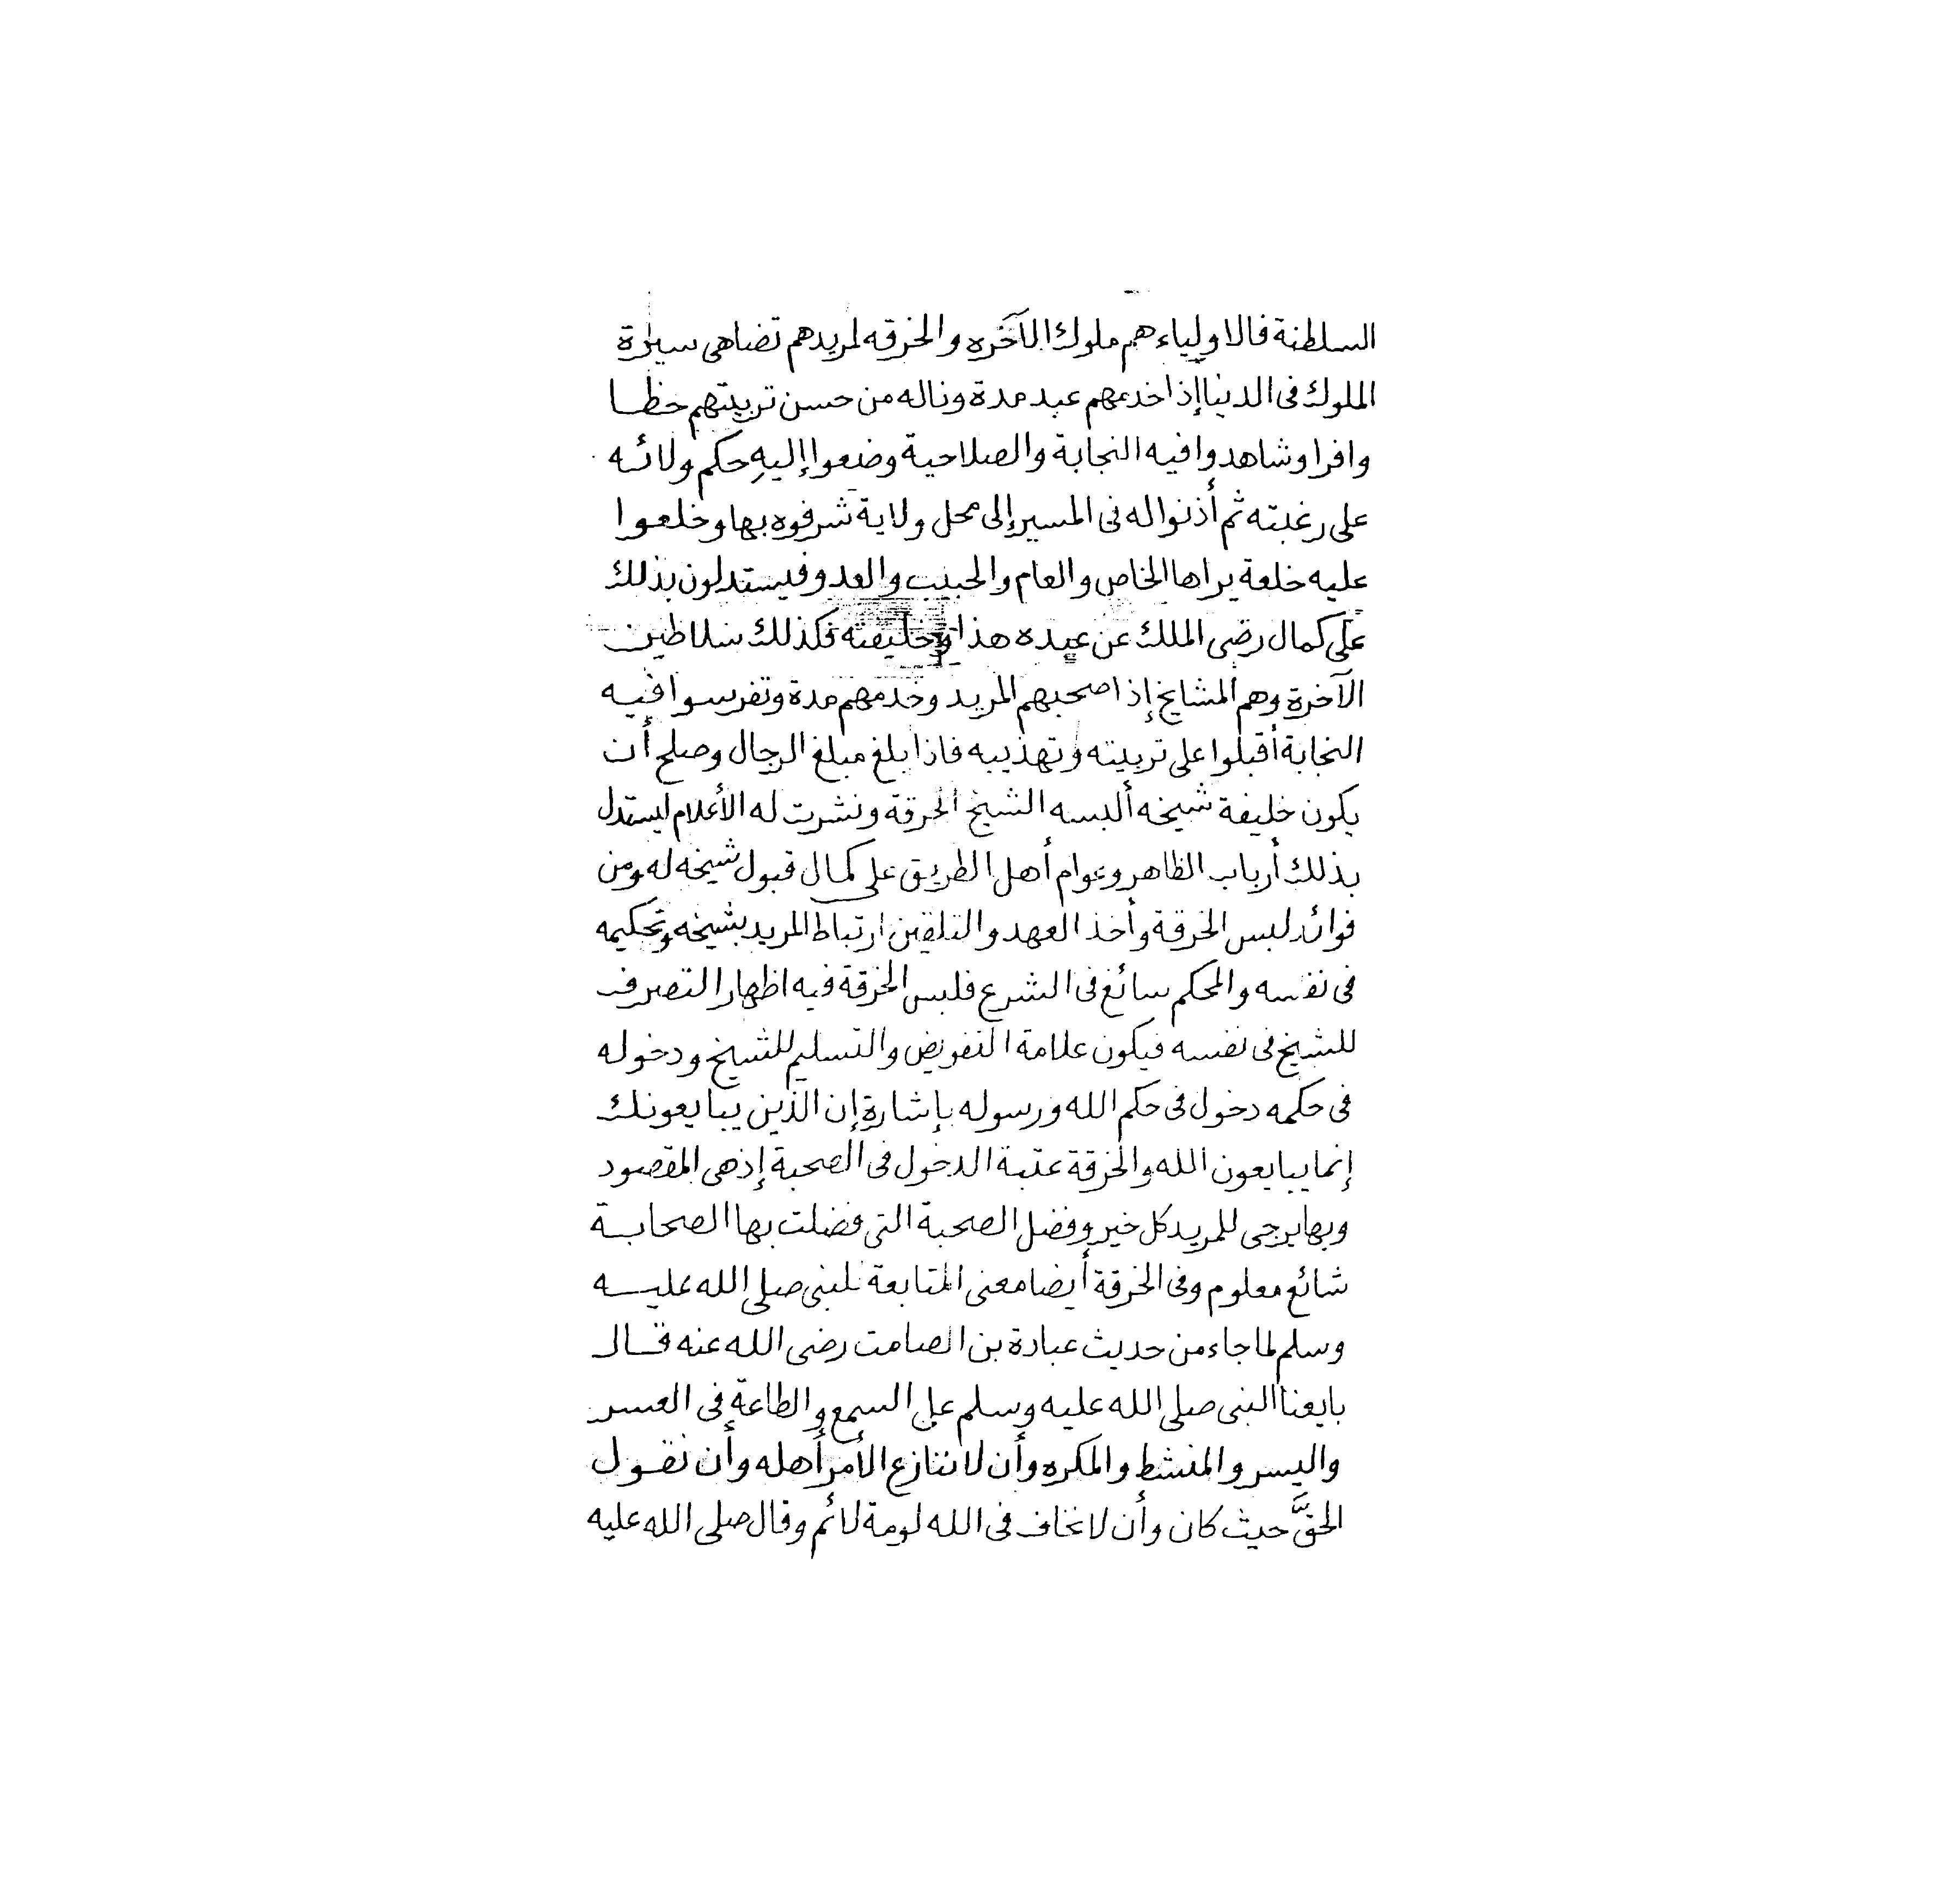 السلطنة فالاولياء هم ملوك الآخره والخرقه لمريدهم تضاهى سيرة
الملوك فى الدنيا إذا خدمهم عبد مدة وناله من حسن تربيتهم حظا
وافرا وشاهدوا فيه النجابة والصلاحية وضعوا إليهِ حكم ولائه
على رغبته ثم أذنوا له فى المسير إلى محل ولاية شرفوه بها وخلعوا
عليه خلعة يراها الخاص والعام والحبيب والعدو فيستدلون بذلك
على كمال رضى الملك عن عبده هذا وخليفته فكذلك سلاطين
الآخرة وهم المشايخ إذا صحبهم المريد وخدمهم مدة وتفرسوا فيه
النجابة أقبلوا على تربيته وتهذيبه فاذا بلغ مبلغ الرجال وصلح أن
يكون خليفة شيخه ألبسه الشيخ الخرقة ونشرت له الأعلام ليستدل
بذلك أرباب الظاهر وعوام أهل الطريق على كمال قبول شيخه له ومن
فوائد لبس الخرقة وأخذ العهد والتلقين ارتباط المريد بشيخه وتحكيمه
فى نفسه والمحكم سائغ فى الشرع فلبس الخرقة فيه اظهار التصرف
للشيخ فى نفسه فيكون علامة التفويض والتسليم للشيخ ودخوله
فى حكمه دخول فى حكم الله ورسوله بإشارة إن الذين يبايعونك
إنما يبايعون الله والخرقة عتبة الدخول فى الصحبة إذ هى المقصود
وبها يرجى للمريد كل خير وفضل الصحبة التى فضلت بها الصحابة
شائع معلوم وفى الخرقة أيضا معنى المتابعة للنبى صلى الله عليه
وسلم لما جاء من حديث عبادة بن الصامت رضى الله عنه قال
بايعنا النبى صلى الله عليه وسلم على السمع والطاعة فى العسر
واليسر والمنشط والمكره وأن لا ننازع الأمر أهله وأن نقول
الحقَّ حيث كان وأن لا نخاف فى الله لومة لائم وقال صلى الله عليه